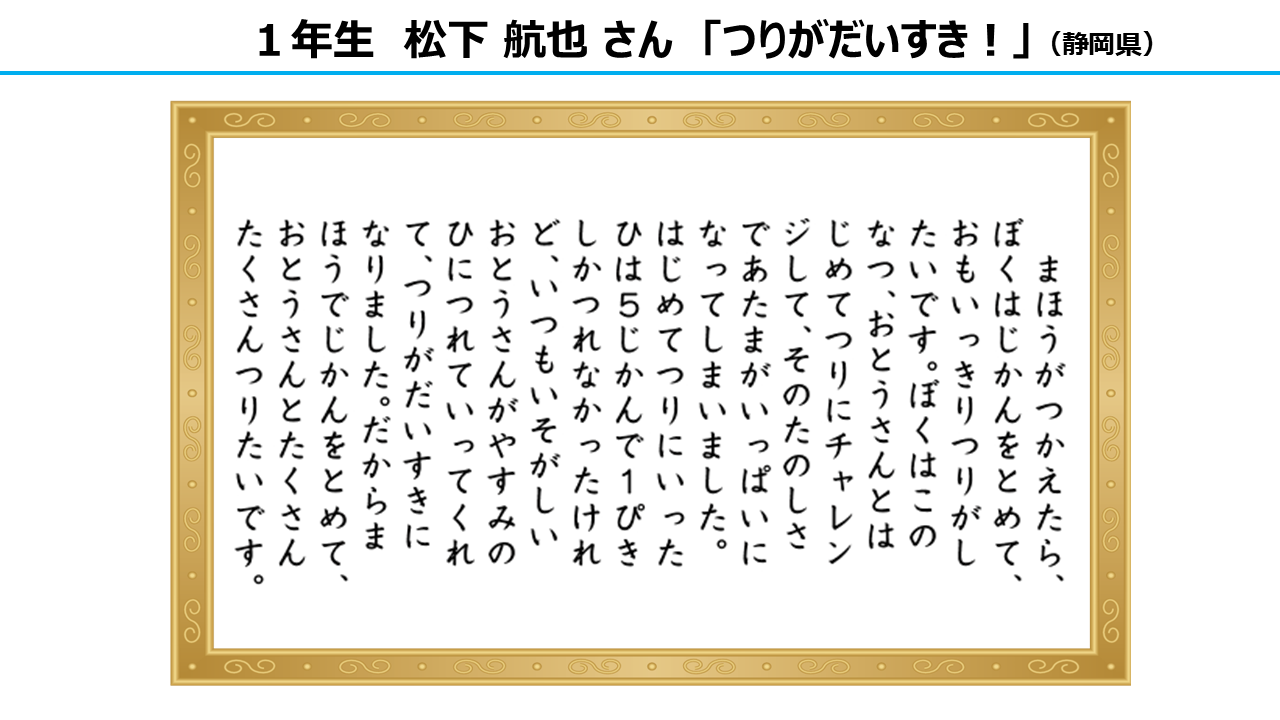 １年生 松下 航也 さん 「つりがだいすき！」（静岡県）
まほうがつかえたら、
ぼくはじかんをとめて、
おもいっきりつりがし
たいです。ぼくはこの
なつ、おとうさんとは
じめてつりにチャレン
ジして、そのたのしさ
であたまがいっぱいに
なってしまいました。
はじめてつりにいった
ひは５じかんで１ぴき
しかつれなかったけれ
ど、いつもいそがしい
おとうさんがやすみの
ひにつれていってくれ
て、つりがだいすきに
なりました。だからま
ほうでじかんをとめて、
おとうさんとたくさん
たくさんつりたいです。